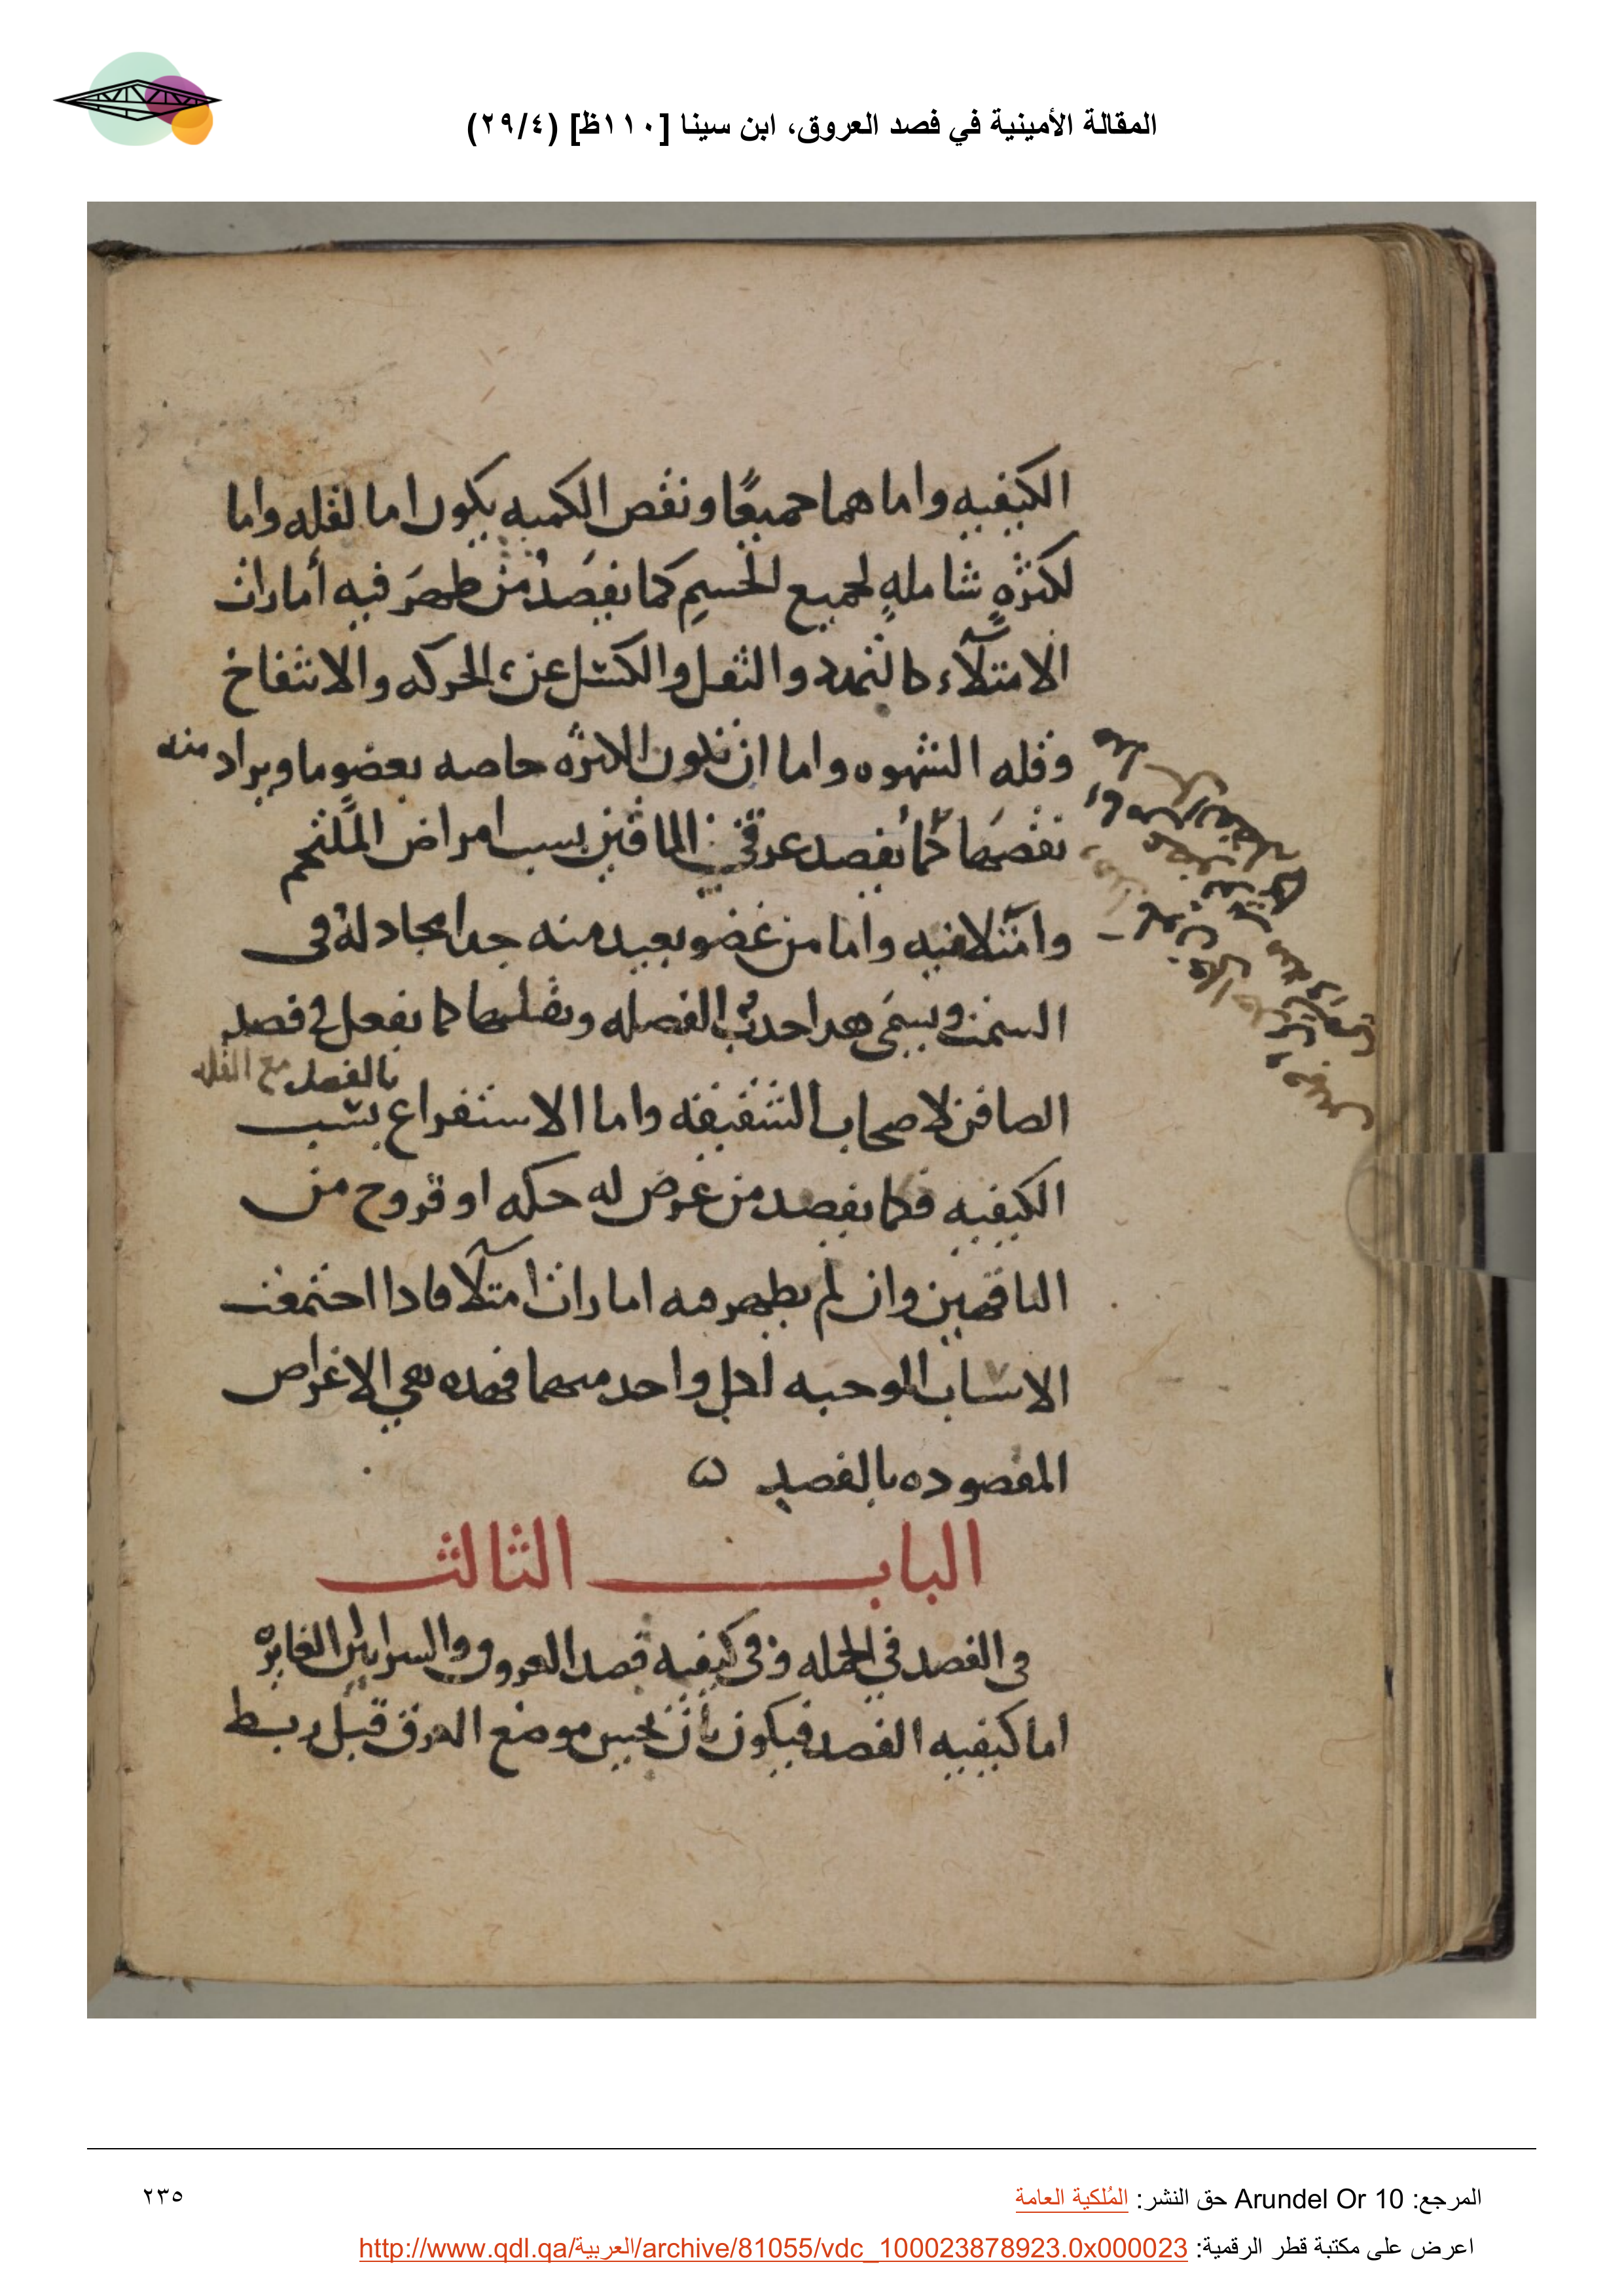 المقالة الأمينية في فصد العروق، ابن سينا [١١٠ظ] (٢٩/٤)
الكيفيه واما هما جميعًا ونقص الكميه يكون اما لقله واما
لكثرهٍ شاملهٍ لجميع الجسمِ كما يفصَدُ من ظهرَ فيه أمارات
الامتلآء كالتمدد والثقل والكسل عن الحركه والانتفاخ
وقله الشهوه واما ان تكون الكثره خاصه بعضوٍ ما ويراد منه
نقصها كما يفصد عرقي الماقين بسبب امراض الملتحم
وامتلا فيه واما من عضو بعيد منه جدا محادله فى
السمت ويسمى هدا حدب الفصله ونقلها كما يفعل في فصد
بالفصد مع القله
الصافن لاصحاب الشقيقه واما الاستفراع بسبب
الكيفيه فكما يفصد من عرض له حكه او قروح من
الناقهين وان لم يظهر فيه امارات امتلآ فادا اجتمعت
الاسباب الموجبه لكل واحد منهما فهده هي الاغراض
المقصوده بالفصد
الباب الثالث
فى الفصد في الجمله وفى كيفيه فصد العروق والشرايين الغايره
اما كيفيه الفصد فيكون بأن يحبس موضع العرق قبل ربط
المرجع: Arundel Or 10 حق النشر: المُلكية العامة
٢٣٥
اعرض على مكتبة قطر الرقمية: http://www.qdl.qa/العربية/archive/81055/vdc_100023878923.0x000023